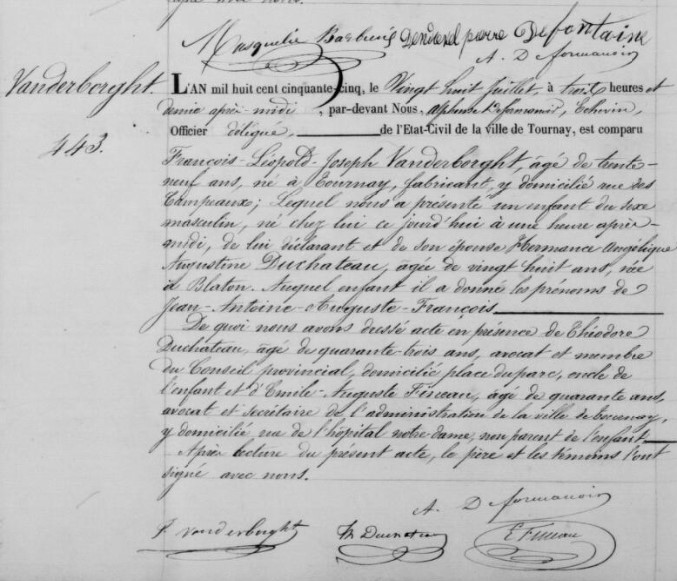 Masquelier Barbieux Dendoxel pierre Defontaine
A. D formanoir
Vanderborght.
443.
L'AN mil huit cent cinquante-cinq, le Vingt huit juillet, à trois heures et
demie après-midi, par-devant Nous, Alphonse Deformanoir, Echevin,
Officier délégué, de l'Etat-Civil de la ville de Tournay, est comparu
François-Léopold-Joseph Vanderborght, âgé de trente-
neuf ans, né à Tournay, fabricant, y domicilié rue des
Campeaux; Lequel nous a présenté un enfant du sexe
masculin, né chez lui ce jourd'hui à une heure après-
midi, de lui déclarant et de son épouse Hermance Angélique
Augustine Duchateau, âgée de vingt huit ans, née
à Blaton. Auquel enfant il a donné les prénoms de
Jean-Antoine-Auguste-François
De quoi nous avons dressé acte en présence de Théodore
Duchateau, âgé de quarante-trois ans, avocat et membre
du Conseil provincial, domicilié place du parc, oncle de
l'enfant et d'Emile-Auguste Fineau, âgé de quarante ans,
avocat et Secrétaire de l'administration de la ville de Tournay,
y domicilié, rue de l'hôpital notre-dame, non parent de l'enfant
Après lecture du présent acte, le père et les témoins l'ont
signé avec nous.
A. D formanoir
f. vanderborght Th Duchateau E Fineau